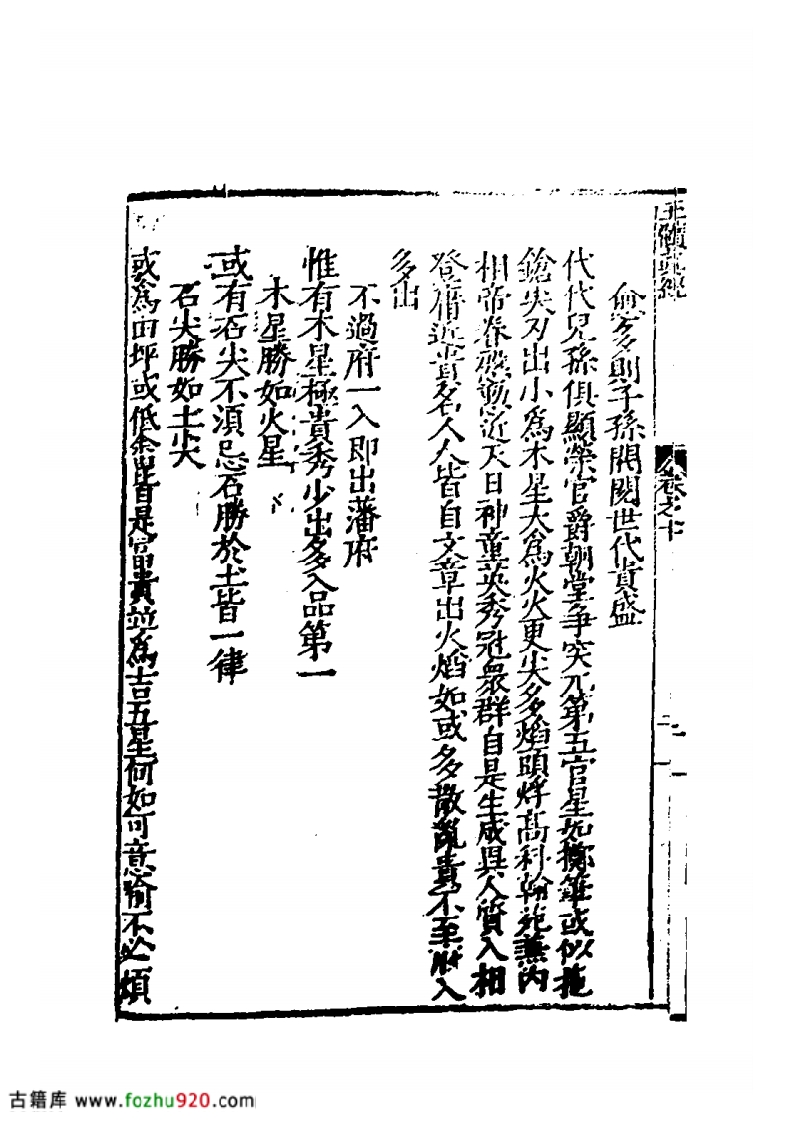 玉髓真經
卷之十
多則子孫開閥世代貴盛
代代兒孫俱顯榮官爵朝堂爭突兀第五官星如擲錐或似拖
鎗尖刃出小為木星大為火火更尖多焰頭烨高科翰苑兼內
相帝眷殷勤近天日神童英秀冠眾群自是生成與人質入相
登庸近貴名人人皆自文章出火焰如或多散亂貴不至府入
多出
不過府一入即出藩府
惟有木星極貴秀少出多入品第一
木星勝如火星
或有石尖不須忌石勝於土皆一律
石尖勝如土尖
或為田坪或低余皆是富貴並為吉五星何如可意喻不必煩
古籍库 www.fozhu920.com